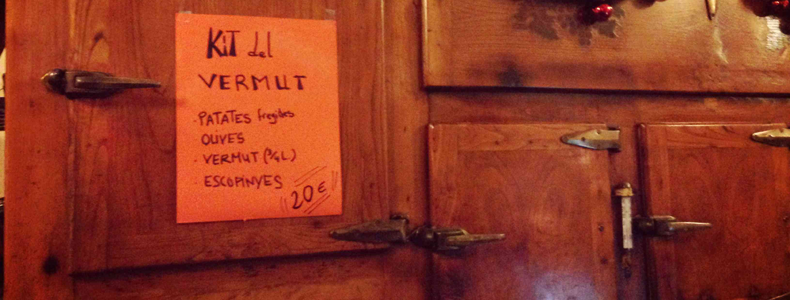 KiT del
VERMUT
· PATATES fregides
OLIVES
· VERMUT (3/4 L.)
· ESCOPINYES
20 €